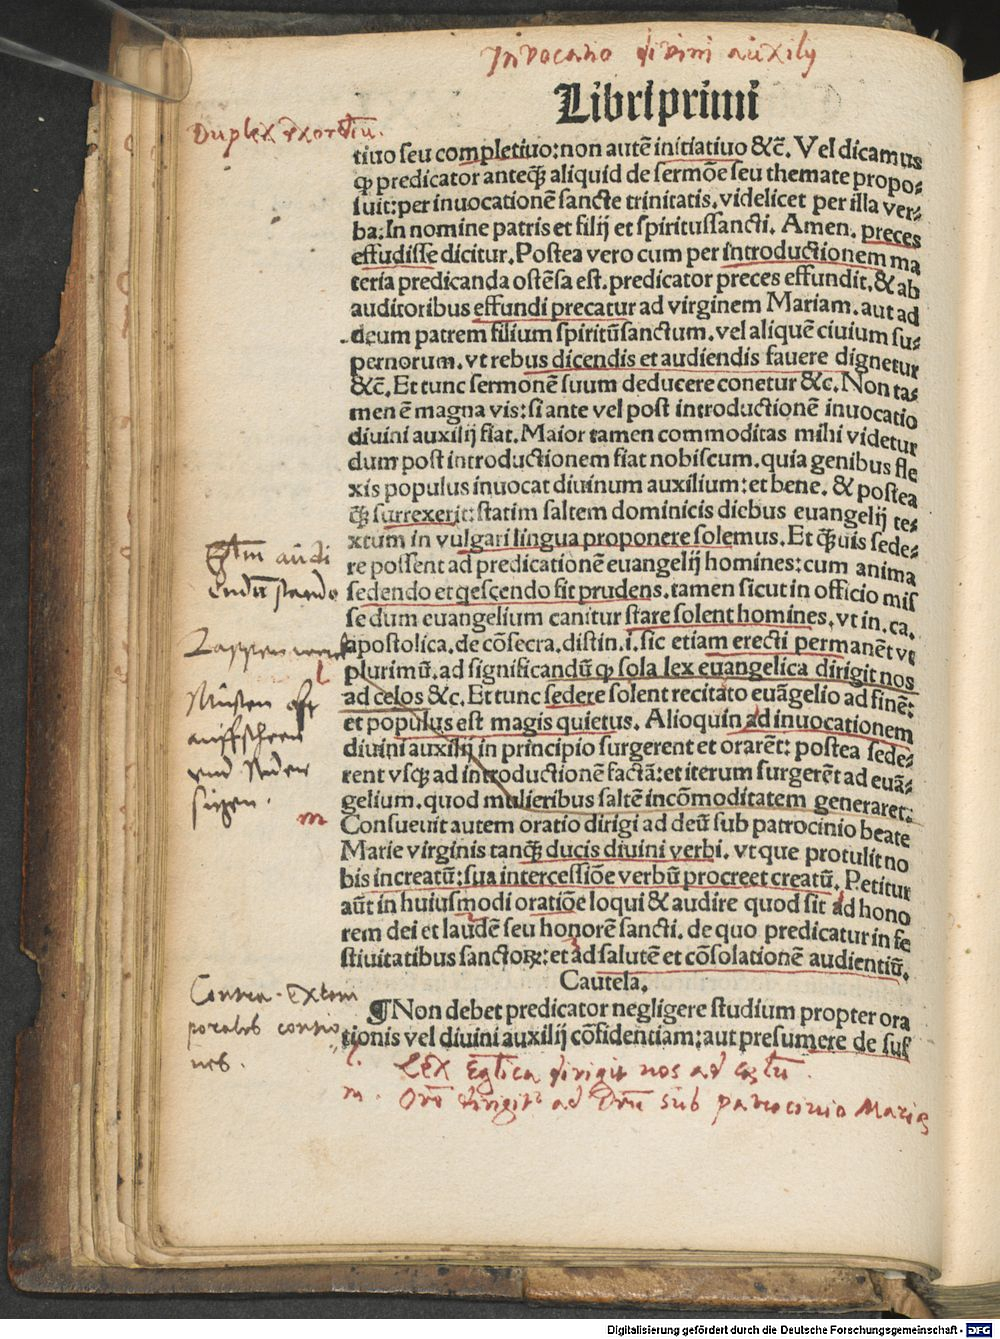 Invocatio divini auxilij
Libri primi
Duplex exordiū.
tiuo seu completiuo: non autē initiatiuo &c̄. Vel dicamus
ꝙ predicator anteꝗ̃ aliquid de sermōe seu themate propo⸗
suit: per inuocationē sancte trinitatis. videlicet per illa ver⸗
ba: In nomine patris et filij et spiritussancti. Amen. preces
effudisse dicitur. Postea vero cum per introductionem ma
teria predicanda ostēsa est. predicator preces effundit. & ab
auditoribus effundi precatur ad virginem Mariam. aut ad
deum patrem filium spiritūsanctum. vel aliquē ciuium su⸗
pernorum. vt rebus dicendis et audiendis fauere dignetur
&c̄. Et tunc sermonē suum deducere conetur &c̄. Non ta⸗
men ē magna vis: si ante vel post introductionē inuocatio
diuini auxilij fiat. Maior tamen commoditas mihi videtur
dum post introductionem fiat nobiscum. quia genibus fle
xis populus inuocat diuinum auxilium: et bene. & postea
ꝗ̃ surrexerit: statim saltem dominicis diebus euangelij te⸗
xtum in vulgari lingua proponere solemus. Et ꝗ̃uis sede⸗
re possent ad predicationē euangelij homines: cum anima
sedendo et qescendo fit prudens. tamen sicut in officio mis
se dum euangelium canitur stare solent homines. vt in. ca.
apostolica. de cōsecra. distin. i. sic etiam erecti permanēt vt
plurimū. ad significandū ꝙ sola lex euangelica dirigit nos
ad celos &c. Et tunc sedere solent recitato euāgelio ad finē:
et populus est magis quietus. Alioquin ad inuocationem
diuini auxilij in principio surgerent et orarēt: postea sede⸗
rent vsꝗ ad introductionē factā: et iterum surgerēt ad euā⸗
gelium. quod mulieribus saltē incōmoditatem generaret:
Consueuit autem oratio dirigi ad deū sub patrocinio beate
Marie virginis tanꝗ̃ ducis diuini verbi. vt que protulit no
bis increatū: sua intercessiōe verbū procreet creatū. Petitur
aūt in huiusmodi oratiōe loqui & audire quod sit ad hono
rem dei et laudē seu honorē sancti. de quo predicatur in fe
stiuitatibus sanctoꝝ: et ad salutē et cōsolationē audientiū.
Cautela.
¶ Non debet predicator negligere studium propter ora
tionis vel diuini auxilij cōfidentiam: aut presumere de suf
l
m
Contra Extem
porales contio
nes.
l. Lex Eglica dirigit nos ad cęlū.
m. Orō dirigit ad Dn̄m sub patrocinio Marię
Digitalisierung gefördert durch die Deutsche Forschungsgemeinschaft - DFG